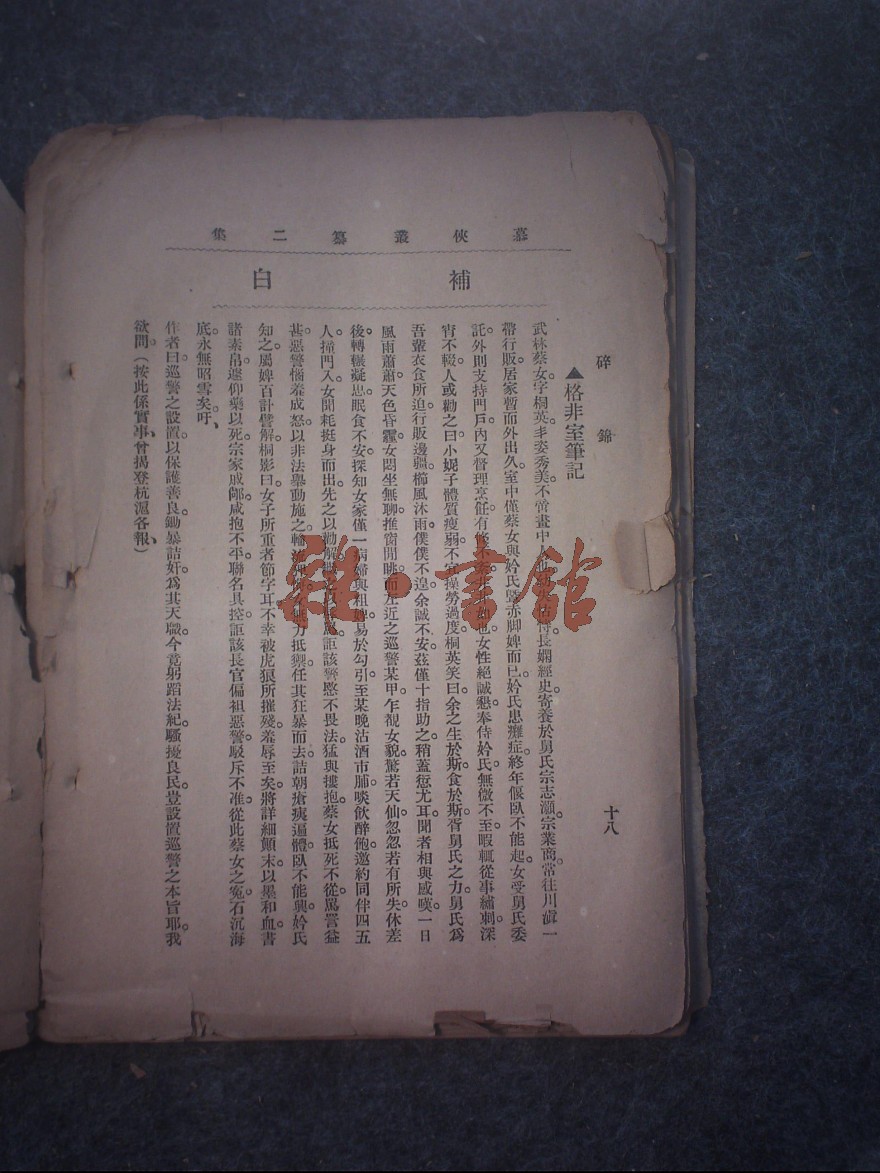 慕俠叢纂二集
補白
碎錦
十八
▲格非室筆記
武林蔡女。字桐英。丰姿秀美。不啻畫中人。也幼失怙恃。長嫻經史。寄養於舅氏宗志灝。宗業商。常往川滇一
帶行販。居家暫而外出久。室中僅蔡女與妗氏暨赤脚婢而已。妗氏患癱症。終年偃臥不能起。女受舅氏委
託。外則支持門戶。內又督理烹飪。有條不紊。井井如也。女性絕誠懇。奉侍妗氏。無微不至。暇輒從事繡刺。深
宵不輟。人或勸之曰。小妮子體質瘦弱。不宜操勞過度。桐英笑曰。余之生於斯。食於斯。胥舅氏之力。舅氏爲
吾輩衣食所迫。行販邊疆。櫛風沐雨。僕僕不遑。余誠不安。茲僅十指助之。稍蓋愆尤耳。聞者相與感嘆。一日
風雨蕭蕭。天色昏霾。女悶坐無聊。推窗閒眺。而左近之巡警某甲。乍覩女貌。驚若天仙。忽忽若有所失。休差
後。轉輾凝思。眠食不安。探知女家僅一病婦與粗婢。易於勾引。至某晚沽酒市脯。啖飲醉飽。邀約同伴四五
人。撞門入。女聞耗挺身而出。先之以勸解。繼之以詬罵。詎該警愍不畏法。猛與摟抱。蔡女抵死不從。罵詈益
甚。惡警惱羞成怒。以非法舉動施之。輪流 女無力抵禦。任其狂暴而去。詰朝瘡痍逼體。臥不能興。妗氏
知之。屬婢百計譬解。桐影曰。女子所重者節字耳。不幸被虎狼所摧殘。羞辱至矣。將詳細顛末。以墨和血。書
諸素帛。遽仰藥以死。宗家戚鄰。咸抱不平。聯名具控。詎該長官偏袒惡警。駁斥不准。從此蔡女之冤。石沉海
底。永無昭雪矣。吁、
作者曰。巡警之設置。以保護善良。鋤暴詰奸。爲其天職。今竟躬蹈法紀。騷擾良民。豈設置巡警之本旨耶。我
欲問。（按此係實事、曾揭登杭滬各報、）
雜·書館